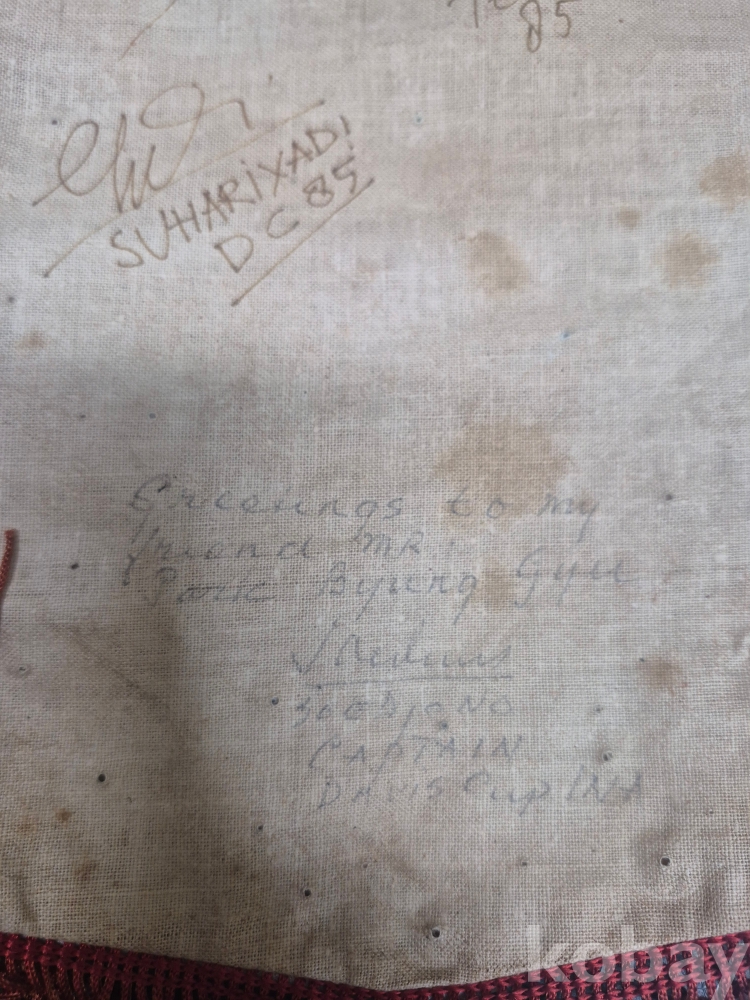 85
SUHARIYADI
DC 85
Greetings to my
friend MR.
Park Byung Gyu
SOEDJONO
CAPTAIN
DAVIS Cup INA
kobay